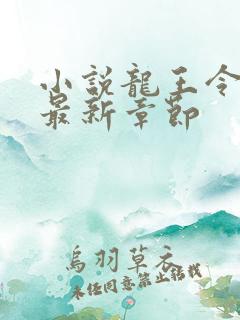 小説龍王令
最新章節
烏羽草衣
未任同意禁止轉載